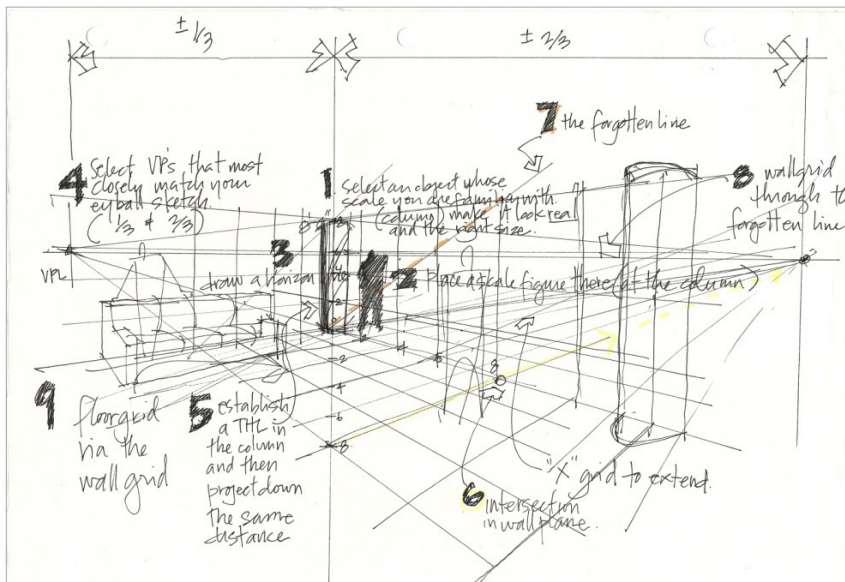 ± 1/3
± 2/3
7 the forgotten line
4 Select VP's that most
closely match your
eyball sketch.
( 1/3 & 2/3 )
1 Select an object whose
scale you are familiar with
(column) make it look real
and the right size.
8 wallgrid
through to
forgotten line
3
draw a horizon
2 Place a scale figure there (at the column)
VPL
8
2
4
6
8
8
9 floorgrid
via the
wall grid
5 establish
a THL in
the column
and then
project down
the same
distance
6 intersection
in wall plane.
"X" grid to extend.